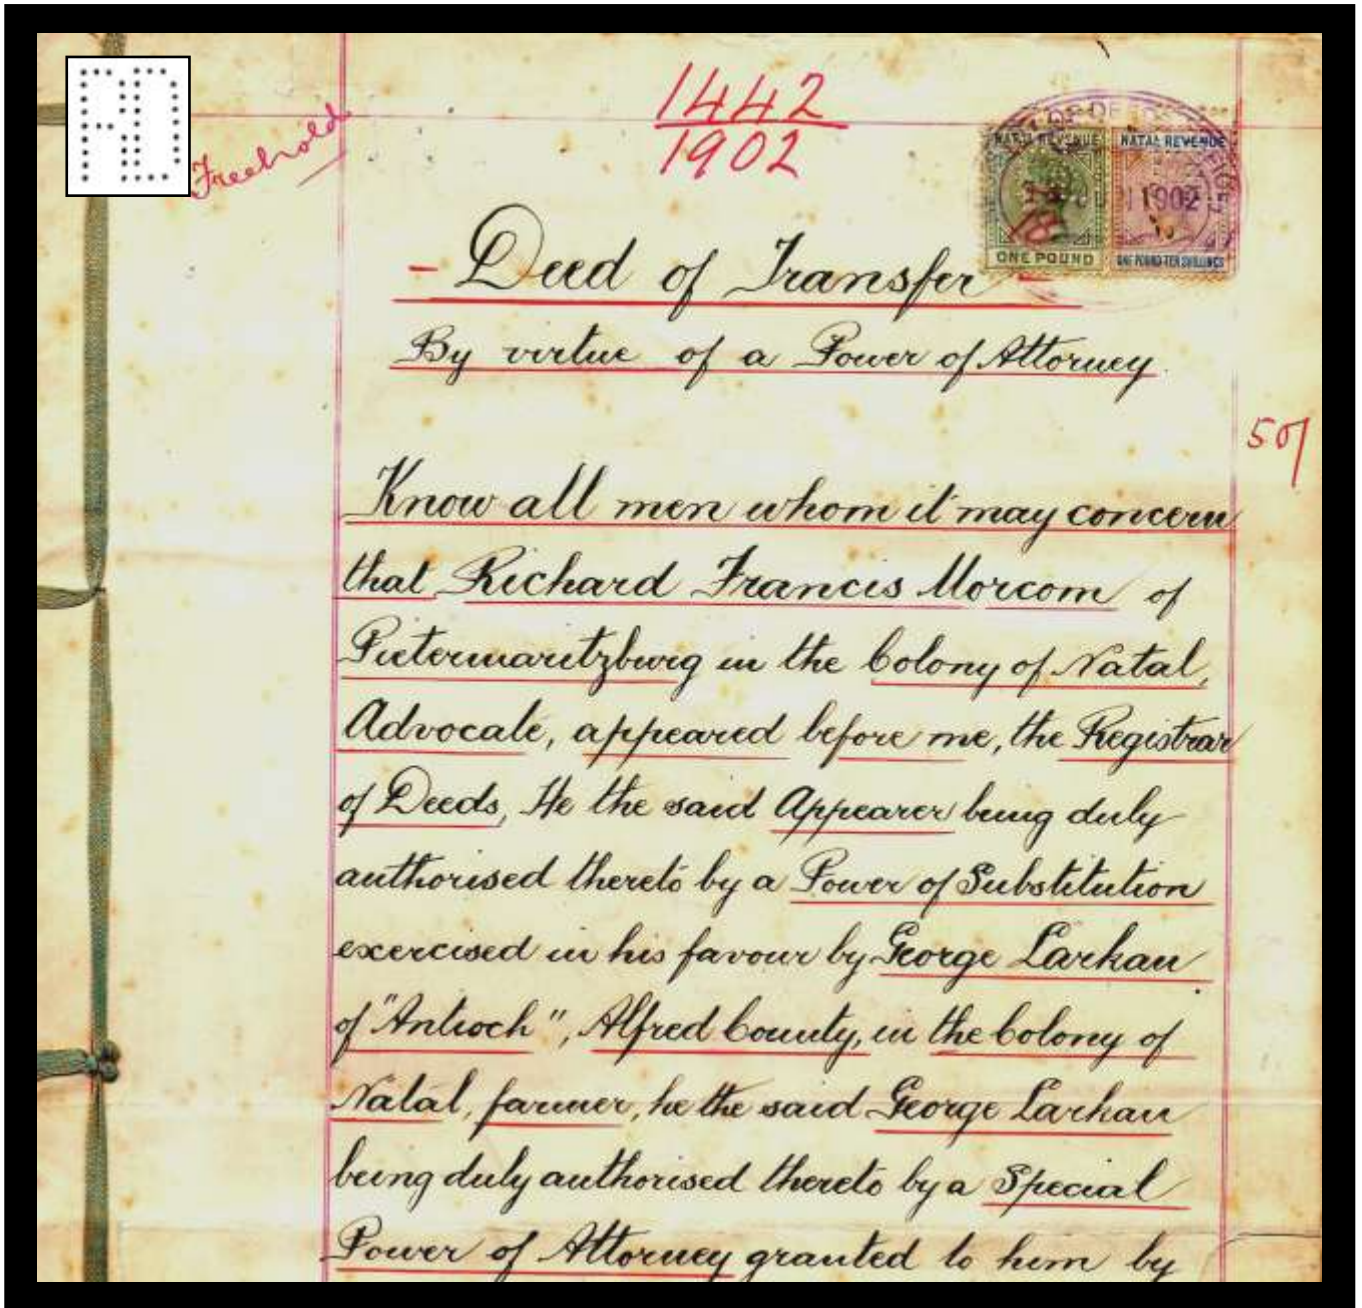 RD
Freehold
1442
1902
NATAL REVENUE NATAL REVENUE
1902
ONE POUND ONE POUND TEN SHILLINGS
- Deed of Transfer -
By virtue of a Power of Attorney.
50/
Know all men whom it may concern
that Richard Francis Morcom of
Pietermaritzburg in the Colony of Natal,
Advocate, appeared before me, the Registrar
of Deeds, He the said Appearer being duly
authorised thereto by a Power of Substitution
exercised in his favour by George Larkan
of "Antioch", Alfred County, in the Colony of
Natal, farmer, he the said George Larkan
being duly authorised thereto by a Special
Power of Attorney granted to him by